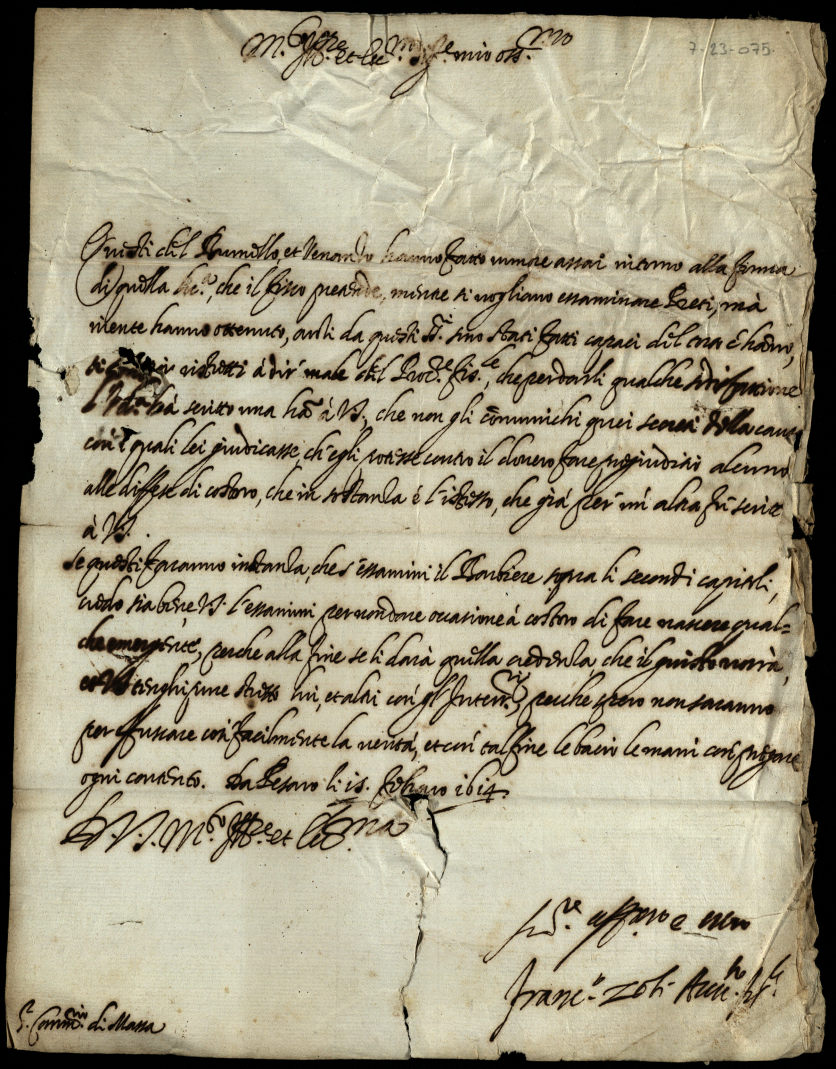 M.to Ill.re et Ecc.mo Sig.re mio oss.mo
7-23-075
Questi del Brunello, et Venando hanno fatto rumore assai intorno alla forma
di quella che il fisco pretende, mentre si vogliano essaminare Preti, mà
niente hanno ottenuto, anzi da questi SS.ri sono stati fatti capaci del
ristretti à dir' male del Proc.re fis.le, che per darli qualche sodisfattione
hà scritto una à V.S., che non gli comunichi quei secreti della causa
con i quali lei giudicasse, ch'egli potesse contro il dovere fare pregiuditio alcuno
alle diffese di costoro, che in sostanza è l'istesso, che già per un' altra fù scritto
à V.S.
Se questi faranno instanza, che s'essamini il Barbiere sopra li secondi capitoli,
credo sia bene V.S. l'essamini per non dare occasione à costoro di fare nascere qual=
che emergente, perche alla fine se li darà quella credenza che il giusto vorrà,
et V.S. tenghi pure stretto lui, et altri con gl'Interr.rij perche spero non saranno
per offuscare così facilmente la verità, et con tal fine le bacio le mani con pregare
ogni contento. Da Pesaro li 15. febraro 1614.
D. V.S. M.to Ill.re et Ecc.ma
S.re aff.mo e vero
Franc.o Zoli Aud.
S.r Comm.rio di Massa